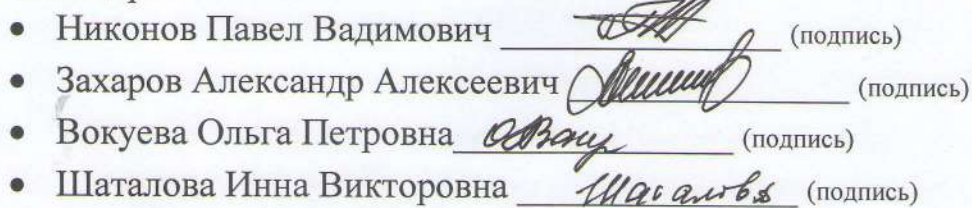 • Никонов Павел Вадимович ____________ (подпись)
• Захаров Александр Алексеевич ____________ (подпись)
• Вокуева Ольга Петровна ____________ (подпись)
• Шаталова Инна Викторовна Шаталова (подпись)